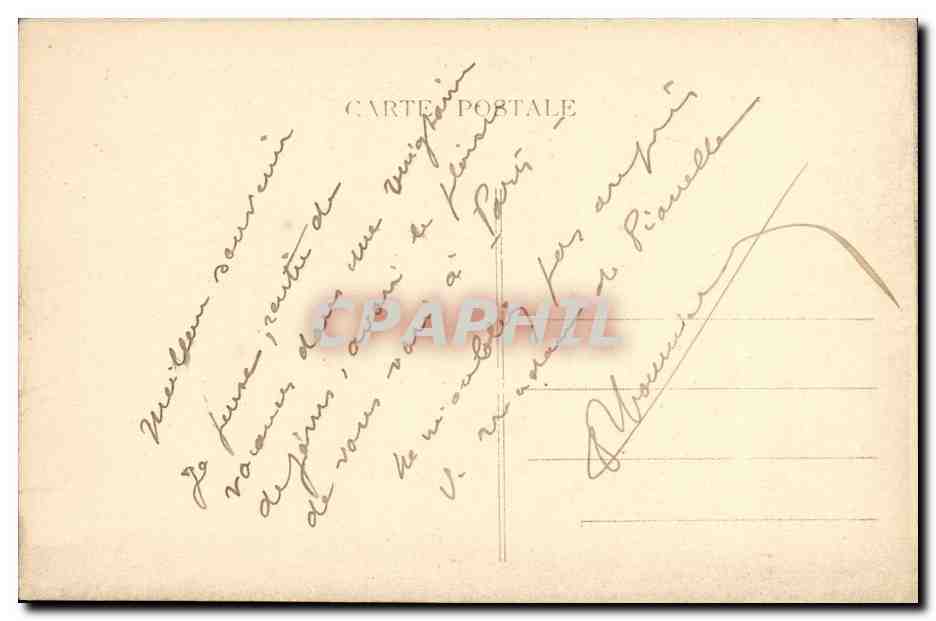 CARTE POSTALE
Meilleur souvenir
Je pense, rentré de
vacances dans une vingtaine
de jours, avoir le plaisir
de vous voir à Paris –
Ne m'oubliez pas auprès
V. madame de Pianelle
CPAPHIL